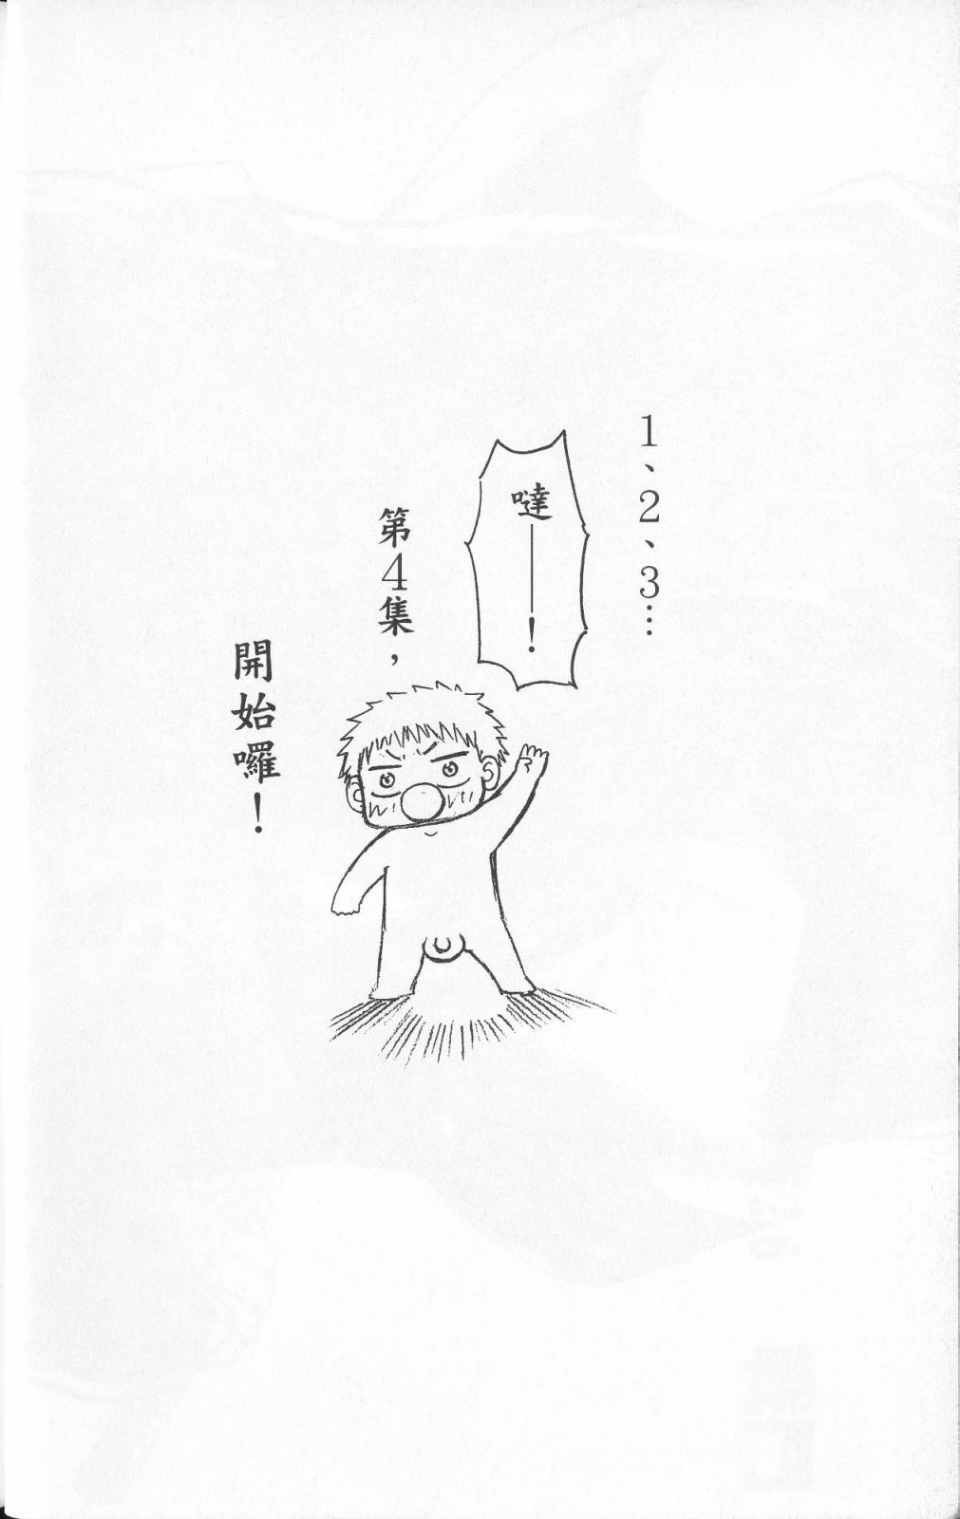 1、2、3…
噠——！
第4集，
開始囉！